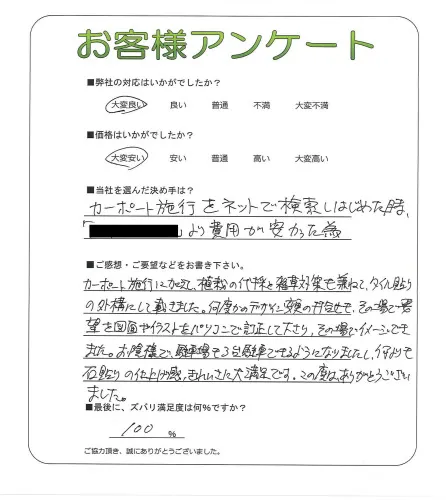 お客様アンケート
■弊社の対応はいかがでしたか？
大変良い 良い 普通 不満 大変不満
■価格はいかがでしたか？
大変安い 安い 普通 高い 大変高い
■当社を選んだ決め手は？
カーポート施行をネットで検索しはじめた時、
「 」より費用が安かった為
■ご感想・ご要望などをお書き下さい。
カーポート施行に加えて、植栽の伐採と雑草対策も兼ねて、タイル貼り
の外構にして戴きました。何度かのデザイン変更の打合せで、その場で希
望を図面やイラストをパソコンで訂正して下さり、その場でイメージでき
ました。お陰様で、駐車場で3台駐車できるようになりましたし、何よりも
石貼りの仕上げ感、きれいさに大満足です。この度はありがとうござい
ました。
■最後に、ズバリ満足度は何％ですか？
100 %
ご協力頂き、誠にありがとうございました。